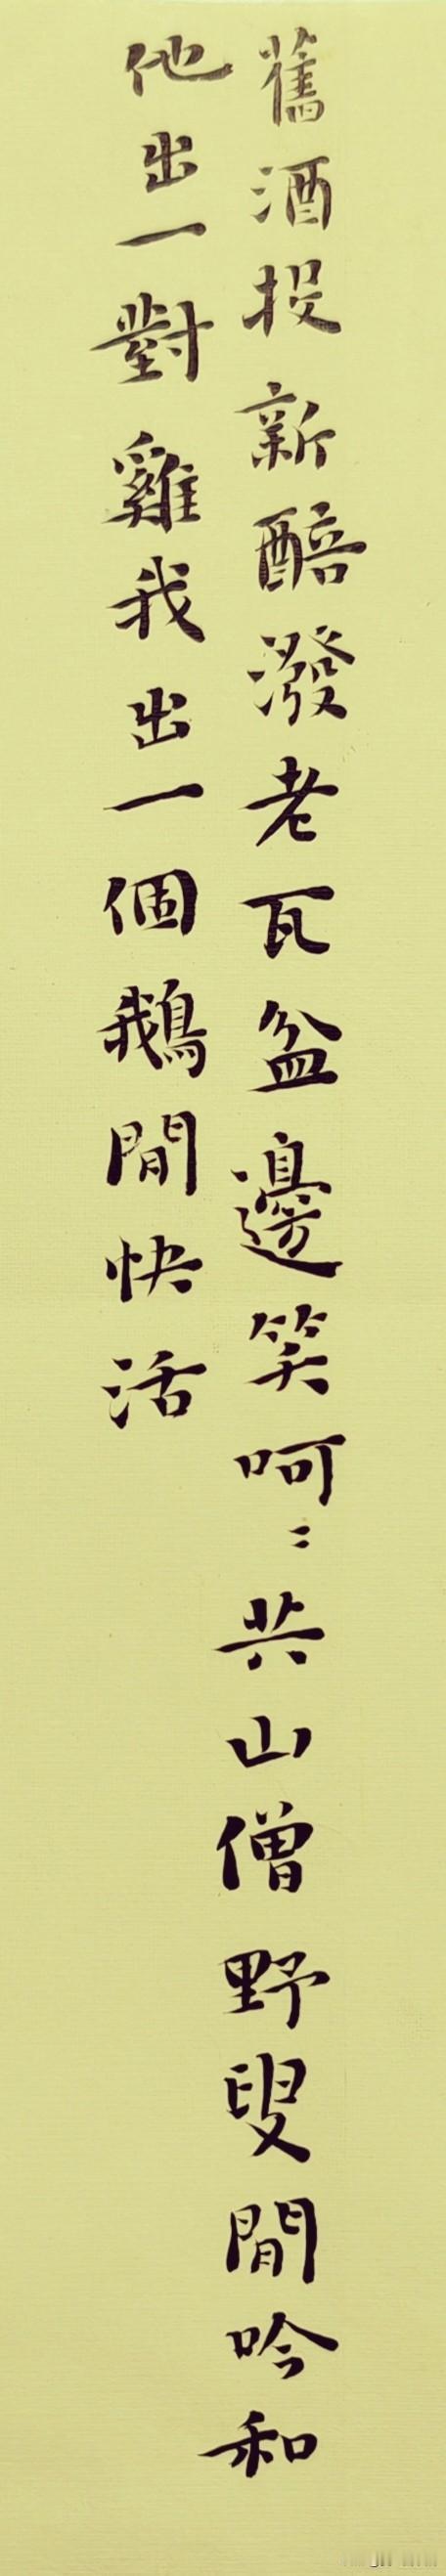 舊酒投新醅潑老瓦盆邊笑呵〻共山僧野叟閒吟和
他出一對雞我出一個鵝閒快活